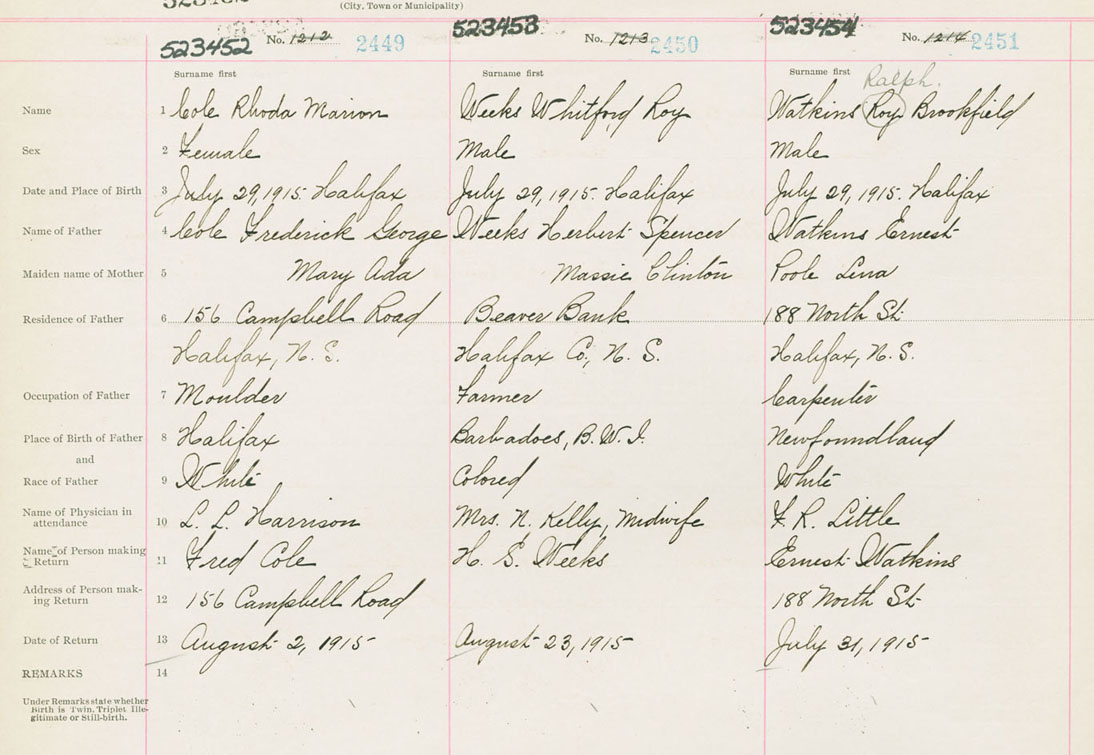 (City, Town or Municipality)
523452 No. 1212 2449 523453 No. 1213 2450 523454 No. 1214 2451
Surname first Surname first Surname first Ralph.
Name 1 Cole Rhoda Marion Weeks Whitford Roy Watkins Roy Brookfield
Sex 2 Female Male Male
Date and Place of Birth 3 July 29, 1915. Halifax July 29, 1915. Halifax July 29, 1915. Halifax
Name of Father 4 Cole Frederick George Weeks Herbert Spencer Watkins Ernest
Maiden name of Mother 5 Mary Ada Massie Clinton Poole Lena
Residence of Father 6 156 Campbell Road Beaver Bank 188 North St.
Halifax, N. S. Halifax Co., N. S. Halifax, N. S.
Occupation of Father 7 Moulder Farmer Carpenter
Place of Birth of Father 8 Halifax Barbadoes, B. W. I. Newfoundland
and
Race of Father 9 White Colored White
Name of Physician in
attendance 10 L. L. Harrison Mrs. N. Kelly, Midwife F. R. Little
Name of Person making
Return 11 Fred Cole H. S. Weeks Ernest Watkins
Address of Person mak-
ing Return 12 156 Campbell Road 188 North St.
Date of Return 13 August 2, 1915 August 23, 1915 July 31, 1915
REMARKS 14
Under Remarks state whether
Birth is Twin. Triplet Ille-
gitimate or Still-birth.